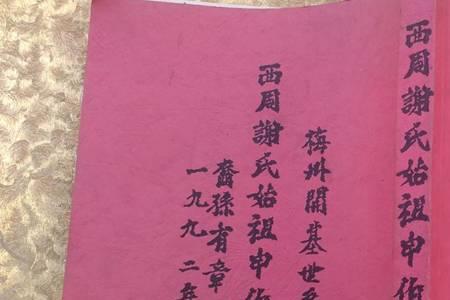 西周謝氏始祖申伯
梅州開基世
西周謝氏始祖申伯
裔孫有章
一九九二年